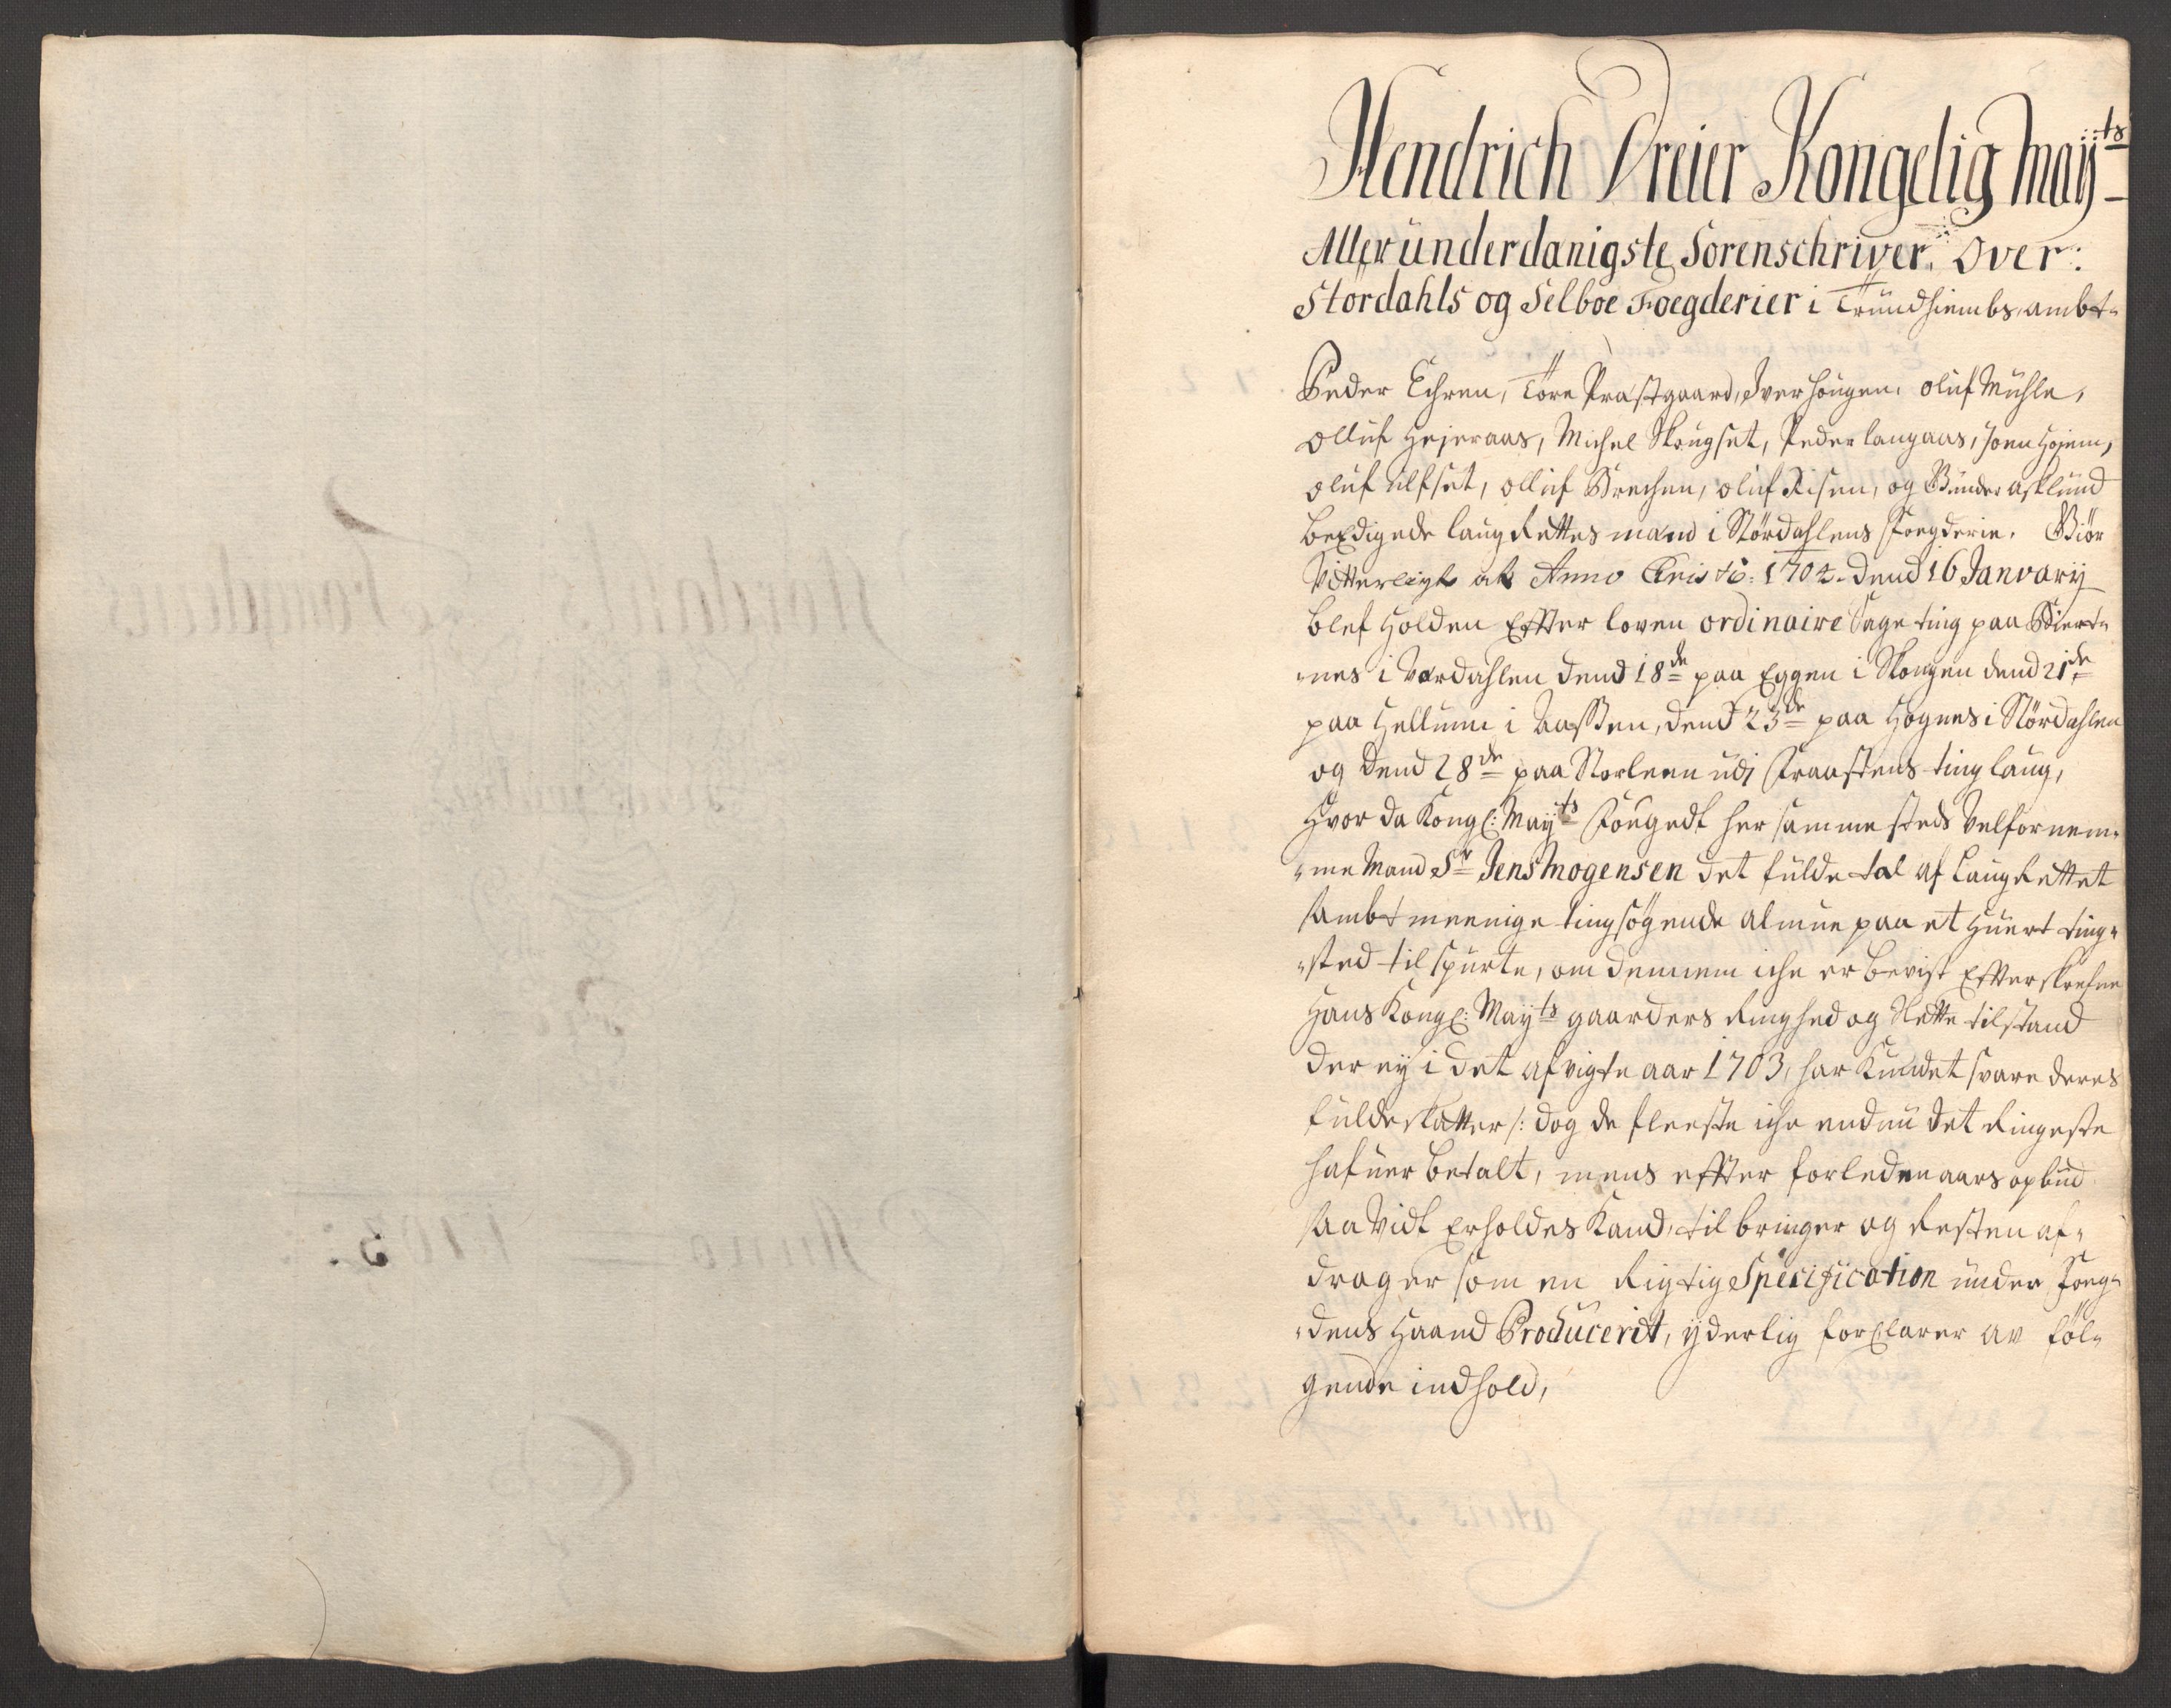 Hendrich Dreier Kongelig May:ts
Alleründerdanigste Sorenschriver, Over:
Stördahls og Selboe Foegderier i Trundhiembs ambt
Peder Echren, Tore Præstgaard, Iver Hougen, Oluf Mühle,
Olluf Hejeraas, Michel Skougset, Peder Langaas, Joen Hojem,
Oluf Ulfset, Olluf Brechen, Oluf Risen, og Gunder Asklund
bæedigede laugrettes mænd i Stördahlens foegderie. Giör
Vitterligt at Anno Christi: 1704. dend 16 January
blef holden effter loven ordinaire Sage ting paa Kiert-
nes i Værdahlen dend 18de paa Eggen i Skongen dend 21de
paa Hellumi i Aasten, dend 23de paa Hognes i Stördahlen
og dend 28de paa Storleen udj Fraastens tinglaug,
Hvor da Kongl: Mayts Fougedt her samme steds Velfornem-
me Mand Sr Jens Mogensen det fulde tal af Laugrettet
sambt meenige tingsögende almue paa et huert ting-
sted tilspurte, om dennem iche er bevist Effterskrefne
Hans Kongl: Mayts gaarders Ringhed og Slette tilstand
der ej i det afvigte aar 1703, har kundet svare deres
fulde skatter /: dog de fleeste iche endnu det Ringeste
hafuer betalt, mens effter forleden aars opbud
saa vidt Erholdes kand, tilbringer og Resten af-
drager som en Rigtig Specification under Foeg-
dens Haand Producerit, yderlig forclarer av föl-
gende indhold,
Stördahls Foegderies
Pro
Anno 1703: